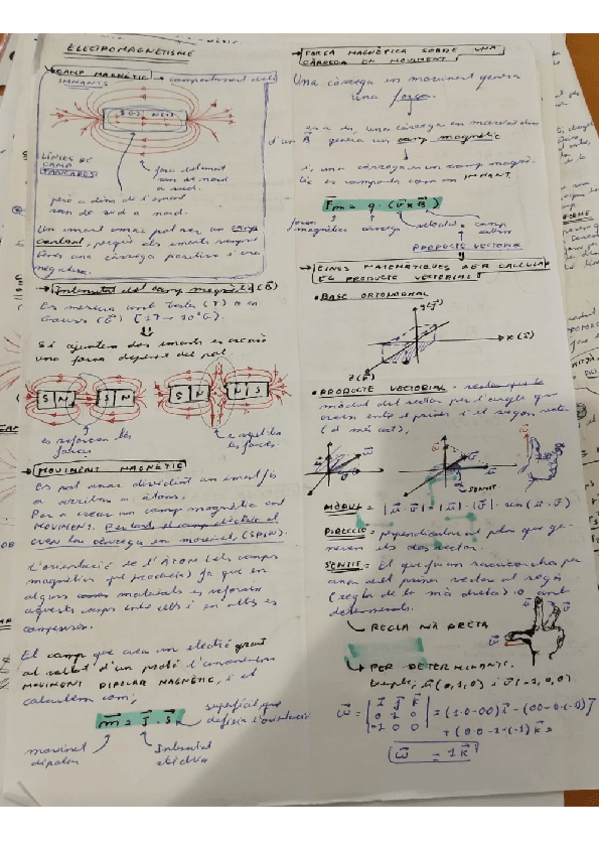 ELECTROMAGNETISME
CAMP MAGNÈTIC → comportament dels
IMANTS
LÍNIES DE
CAMP
TANCADES!
fora
de nord
a sud.
però a dins de l'imant
van de sud a nord.
Un imant
camp
perquè els imants sempre
tenen una càrrega positiva i una
negativa.
→ Intensitat del camp magnètic (B)
Es mesura amb Tesles (T) o en
Gauss (G) [1T → 10⁴G].
Si ajuntem dos imants es crearà
una força depenent del pol.
S N S N
S N N S
es reforcen les
forces
les forces.
→ MOVIMENT MAGNÈTIC
Es pot anar dividint un imant fins
a arribar a àtoms.
Per a crear un camp magnètic cal
MOVIMENT. Per tant, el camp elèctric el
creen les càrregues en moviment (SPIN).
L'orientació de l'ÀTOM (els camps
magnètics que produeix) fa que en
alguns materials es reforcin
aquests camps entre ells i en altres es
compensin.
El camp que crea un electró girant
al voltant d'un protó l'anomenem
MOVIMENT DIPOLAR MAGNÈTIC, i el
calculem com;
m⃗ = I · S⃗
superfície que
defineix l'orientació
moviment
dipolar
Intensitat
elèctrica
FORÇA MAGNÈTICA SOBRE UNA
CÀRREGA EN MOVIMENT
Una càrrega en moviment genera
una força.
una càrrega en moviment dins
d'un B⃗ genera un camp magnètic
una càrrega en un camp magnè-
tic es comporta com un IMANT.
F⃗m = q · (v⃗ × B⃗)
força
magnètica
càrrega
velocitat
camp
PRODUCTE VECTORIAL
→ EINES MATEMÀTIQUES PER CALCULAR
EL PRODUCTE VECTORIAL:
• BASE ORTONORMAL
y(j⃗)
x(i⃗)
z(k⃗)
• PRODUCTE VECTORIAL - vector que té
mòdul del vector per l'angle que
creen entre el primer i el segon vector
(el més curt),
SENTIT
MÒDUL = |u⃗ · v⃗| = |u⃗| · |v⃗| · sen(u⃗ · v⃗)
DIRECCIÓ = perpendicular al pla que ge-
neren els dos vectors.
SENTIT = El que fa un per
anar del primer vector al segon
(regla de la mà dreta) o amb
determinants.
↳ REGLA MÀ DRETA
↳ PER DETERMINANTS:
Exemple; u⃗(0,1,0) i v⃗(-1,0,0)
w⃗ = | i⃗ j⃗ k⃗ | = (1·0-0·0)i⃗ - (0·0-0·(-1))j⃗
0 1 0
-1 0 0
+ (0·0-1·(-1))k⃗ =
w⃗ = 1k⃗